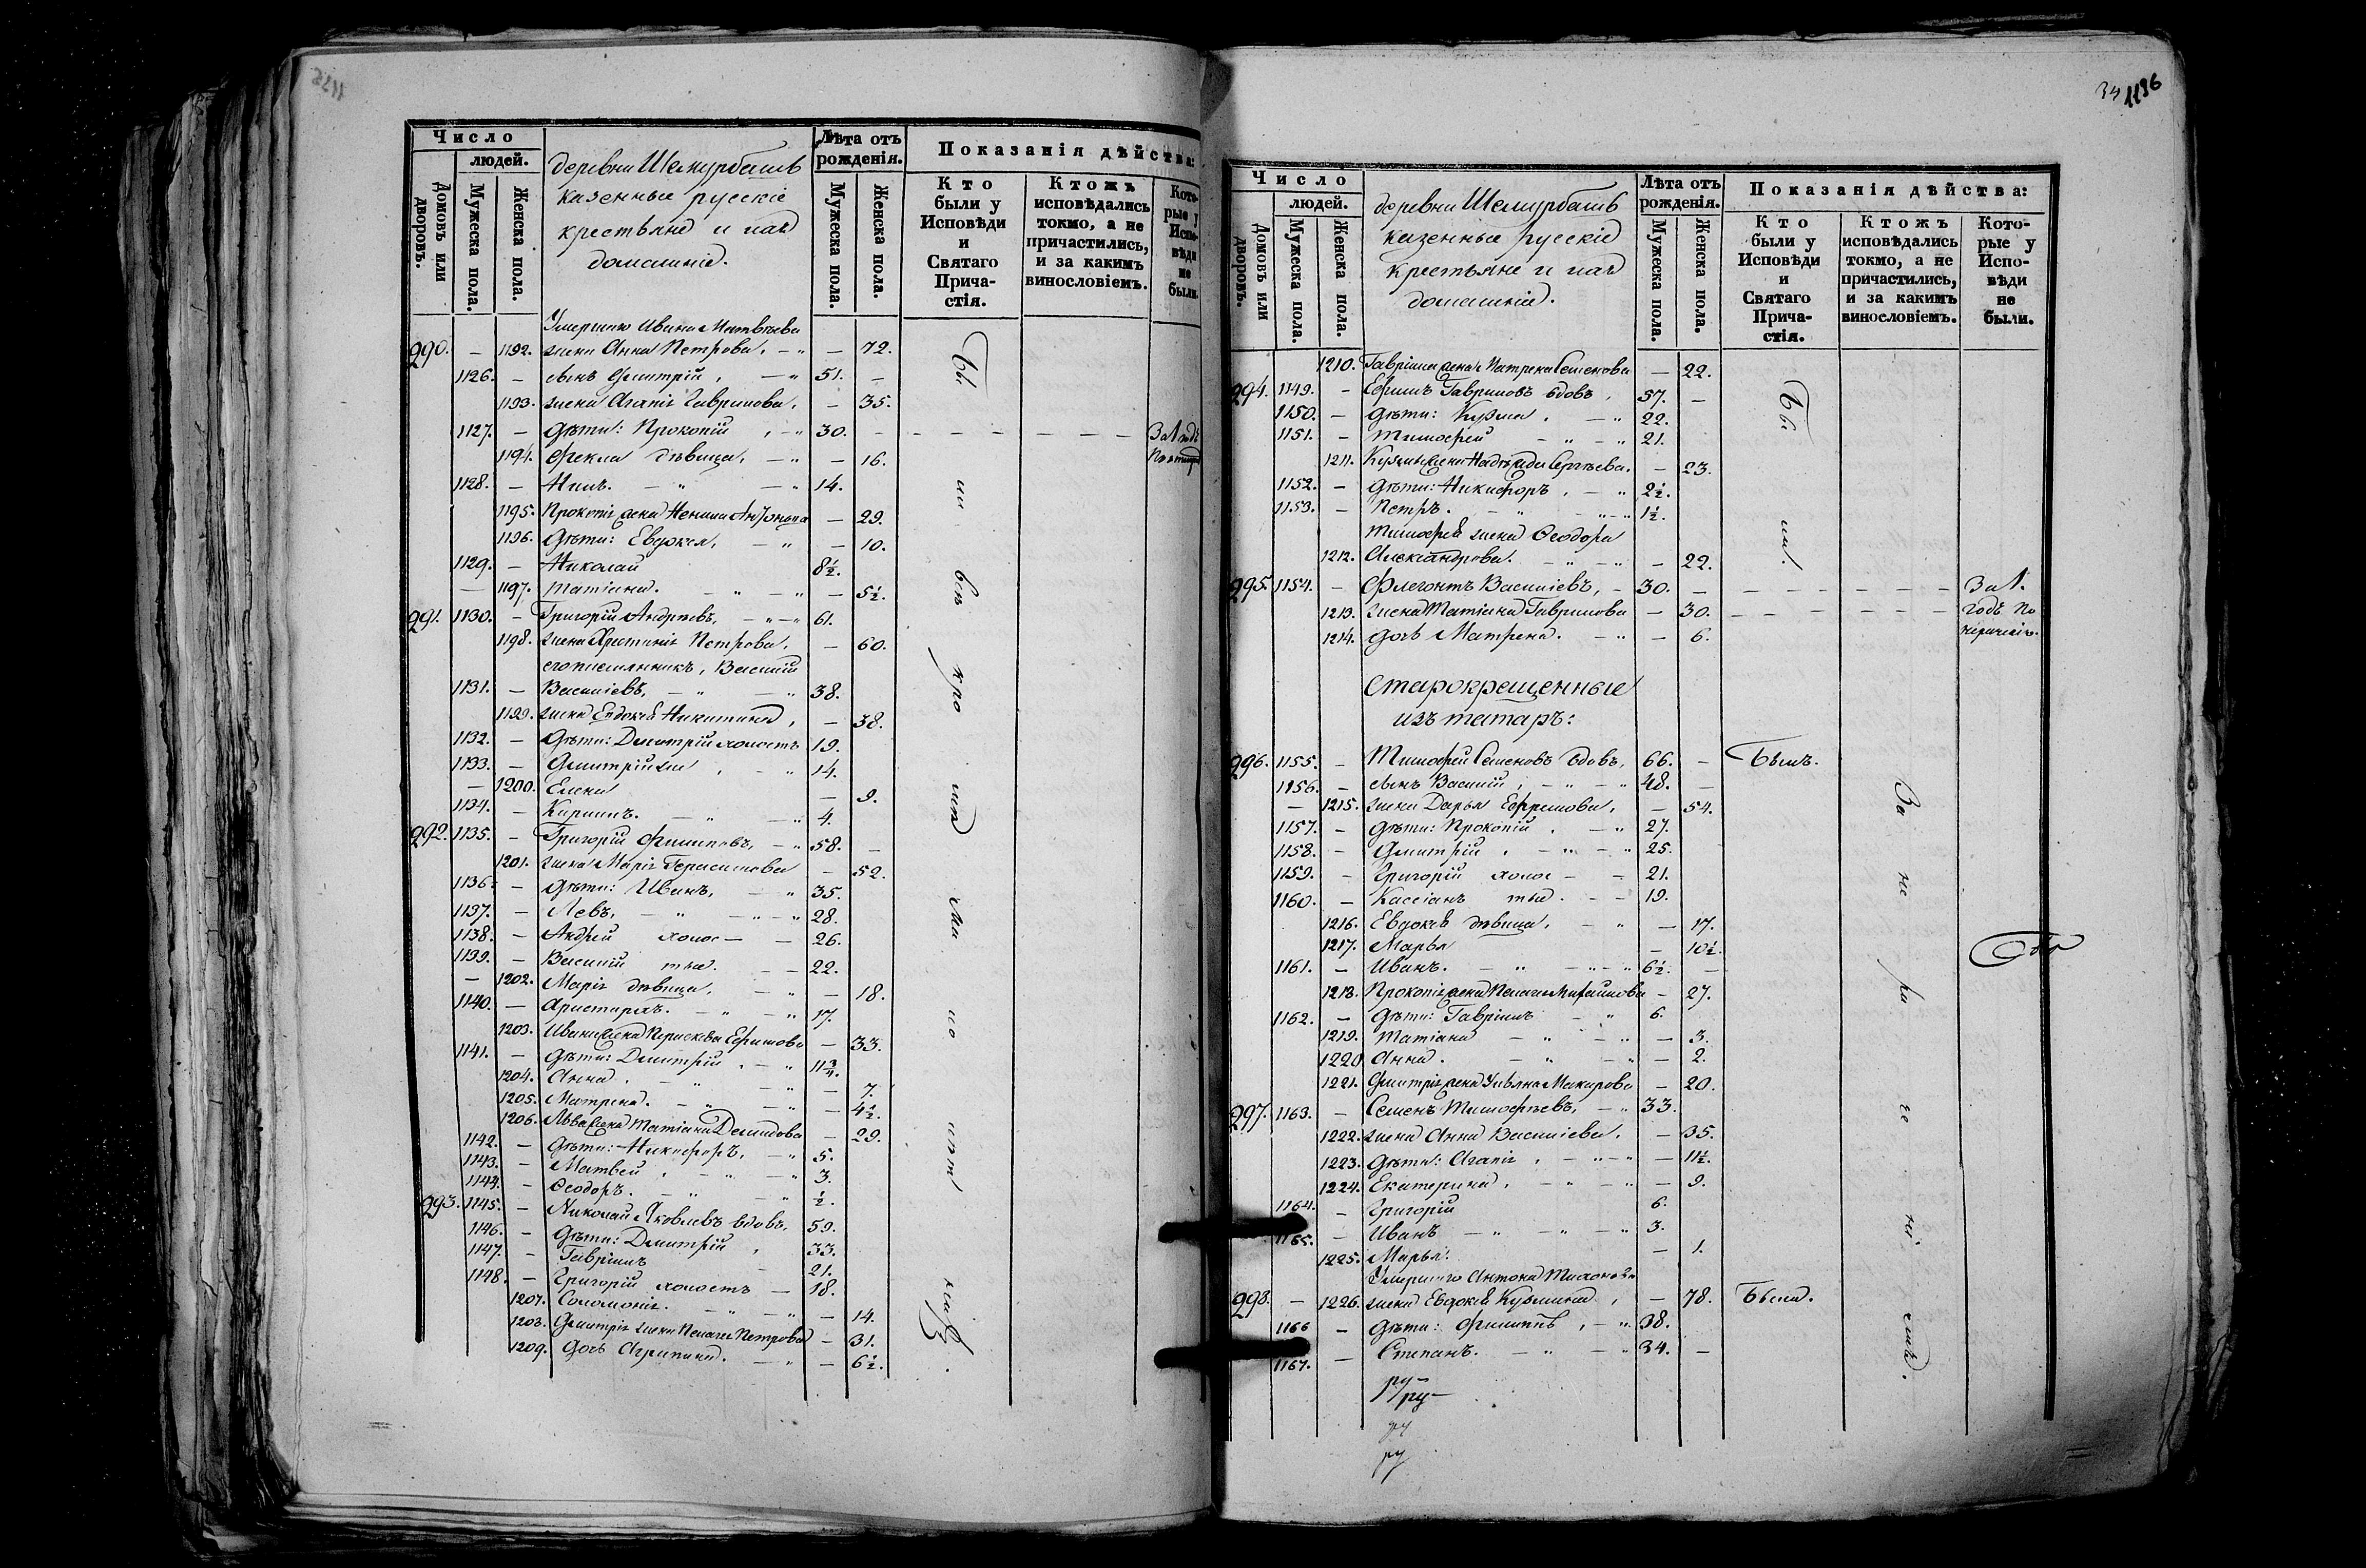 Число
людей.
Домовъ или дворовъ.
Мужеска пола.
Женска пола.
деревни Шемурбашъ
казенные русскіе
крестьяне и ихъ
домашніе.
Лѣта отъ рожденія.
Мужеска пола.
Женска пола.
Показанія дѣйства:
Кто были у Исповѣди и Святаго Причастія.
Ктожъ исповѣдались токмо, а не причастились, и за какимъ винословіемъ.
Которые у Исповѣди не были.
Умершаго Ивана Матвѣева
290. — 1192. жена Анна Петрова, — — 72.
1126. — сынъ Дмитрій, — 51. —
1193. жена Агапія Гаврилова, — 35.
1127. — дѣти: Прокопій, — 30. —
1194. Фекла дѣвица, — — 16.
1128. — Нилъ. — 14.
1195. Прокопія жена Ненила Антонова — 29.
1196. Дѣти: Евдокея, — — 10.
1129. — Николай 8½.
— 1197. Татіана. — — 5½.
291. 1130. — Григорій Андреевъ, — 61.
1198. жена Христинія Петрова, — 60.
его племянникъ, Василій
1131. — Василіевъ, — 38.
1199. жена Евдокія Никитина, — 38.
1132. — Дѣти: Дмитрій холостъ 19.
1133. — Дмитрій же, — 14.
— 1200. Елена — 9.
1134. — Кирилъ. — 4.
292. 1135. — Григорій Филиповъ, — 58. —
1201. жена Марія Герасимова — 52.
1136. — Дѣти: Иванъ, — 35.
1137. — Левъ, — 28.
1138. — Андрей холос— — 26.
1139. — Василій ты. — 22.
— 1202. Марія дѣвица, — — 18.
1140. — Аристархъ. — 17.
1203. Ивана жена Параскева Ефимова — 33.
1141. — Дѣти: Дмитрій, — 11¾.
1204. Анна, — — 7.
1205. Матрена. — — 4½.
1206. Льва жена Татіана Демидова — 29.
1142. — Дѣти: Никифоръ, — 5.
1143. — Матвей, — 3.
1144. — Ѳеодоръ. — ½.
293. 1145. — Николай Яковлевъ вдовъ, 59.
1146. — Дѣти: Дмитрій, 33.
1147. — Гавріилъ — 21.
1148. — Григорій холостъ — 18.
1207. Соломонія. — — 14.
1208. Дмитрія жена Пелагея Петрова — 31.
1209. Дочь Агрипина. — — 6½.
Бы
ли
всѣ
кро
мѣ
1196
Число
людей.
Домовъ или дворовъ.
Мужеска пола.
Женска пола.
деревни Шемурбашъ
казенные русскіе
крестьяне и ихъ
домашніе.
Лѣта отъ рожденія.
Мужеска пола.
Женска пола.
Показанія дѣйства:
Кто были у Исповѣди и Святаго Причастія.
Ктожъ исповѣдались токмо, а не причастились, и за какимъ винословіемъ.
Которые у Исповѣди не были.
1210. Гавріила жена Матрена Семенова — 22.
294. 1149. — Ефимъ Гавриловъ вдовъ, 57. —
1150. — Дѣти: Кузма, — 22.
1151. — Тимофей — 21.
1211. Кузмы жена Надежда Сергѣева. — 23.
1152. — Дѣти: Никифоръ, — 2½.
1153. — Петръ. — 1½.
Тимофея жена Ѳеодора
1212. Александрова. — — 22.
295. 1154. — Флегонтъ Василіевъ, — 30. —
1213. жена Татіана Гаврилова — 30.
1214. дочь Матрена. — — 6.
Бы
ли.
За 1.
годъ по
нераченію.
Старокрещенные
изъ татаръ:
296. 1155. — Тимофей Семеновъ вдовъ, 66. — Былъ.
1156. — сынъ Василій, — 48. —
— 1215. жена Дарья Ефремова, — 54.
1157. — Дѣти: Прокопій, — 27.
1158. — Дмитрій, — 25.
1159. — Григорій холос— — 21.
1160. — Кассіанъ ты. — 19.
1216. Евдокія дѣвица, — — 17.
1217. Марья — 10½.
1161. — Иванъ. — 6½. —
1218. Прокопія жена Пелагея Михайлова — 27.
1162. — Дѣти: Гавріилъ — 6.
1219. Татіана — — 3.
1220. Анна. — — 2.
1221. Дмитрія жена Ульяна Макарова — 20.
297. 1163. — Семенъ Тимофеевъ, — 33.
1222. жена Анна Василіева, — 35.
1223. Дѣти: Агапія, — — 11½.
1224. Екатерина, — — 9.
1164. — Григорій 6.
1165. — Иванъ — 3.
1225. Марья. — 1.
Умершаго Антона Тихонова
298. — 1226. жена Евдокія Кузмина, — 78. Была.
1166 — Дѣти: Филиппъ, — 38.
1167. — Степанъ. — 34. —
За
не
ра
че
ні
емъ.